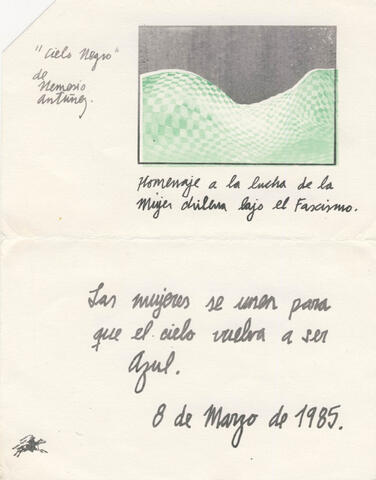 "Cielo Negro"
de
Nemesio
Antúnez.
Homenaje a la lucha de la
Mujer chilena bajo el Fascismo.
Las mujeres se unen para
que el cielo vuelva a ser
Azul.
8 de Marzo de 1985.